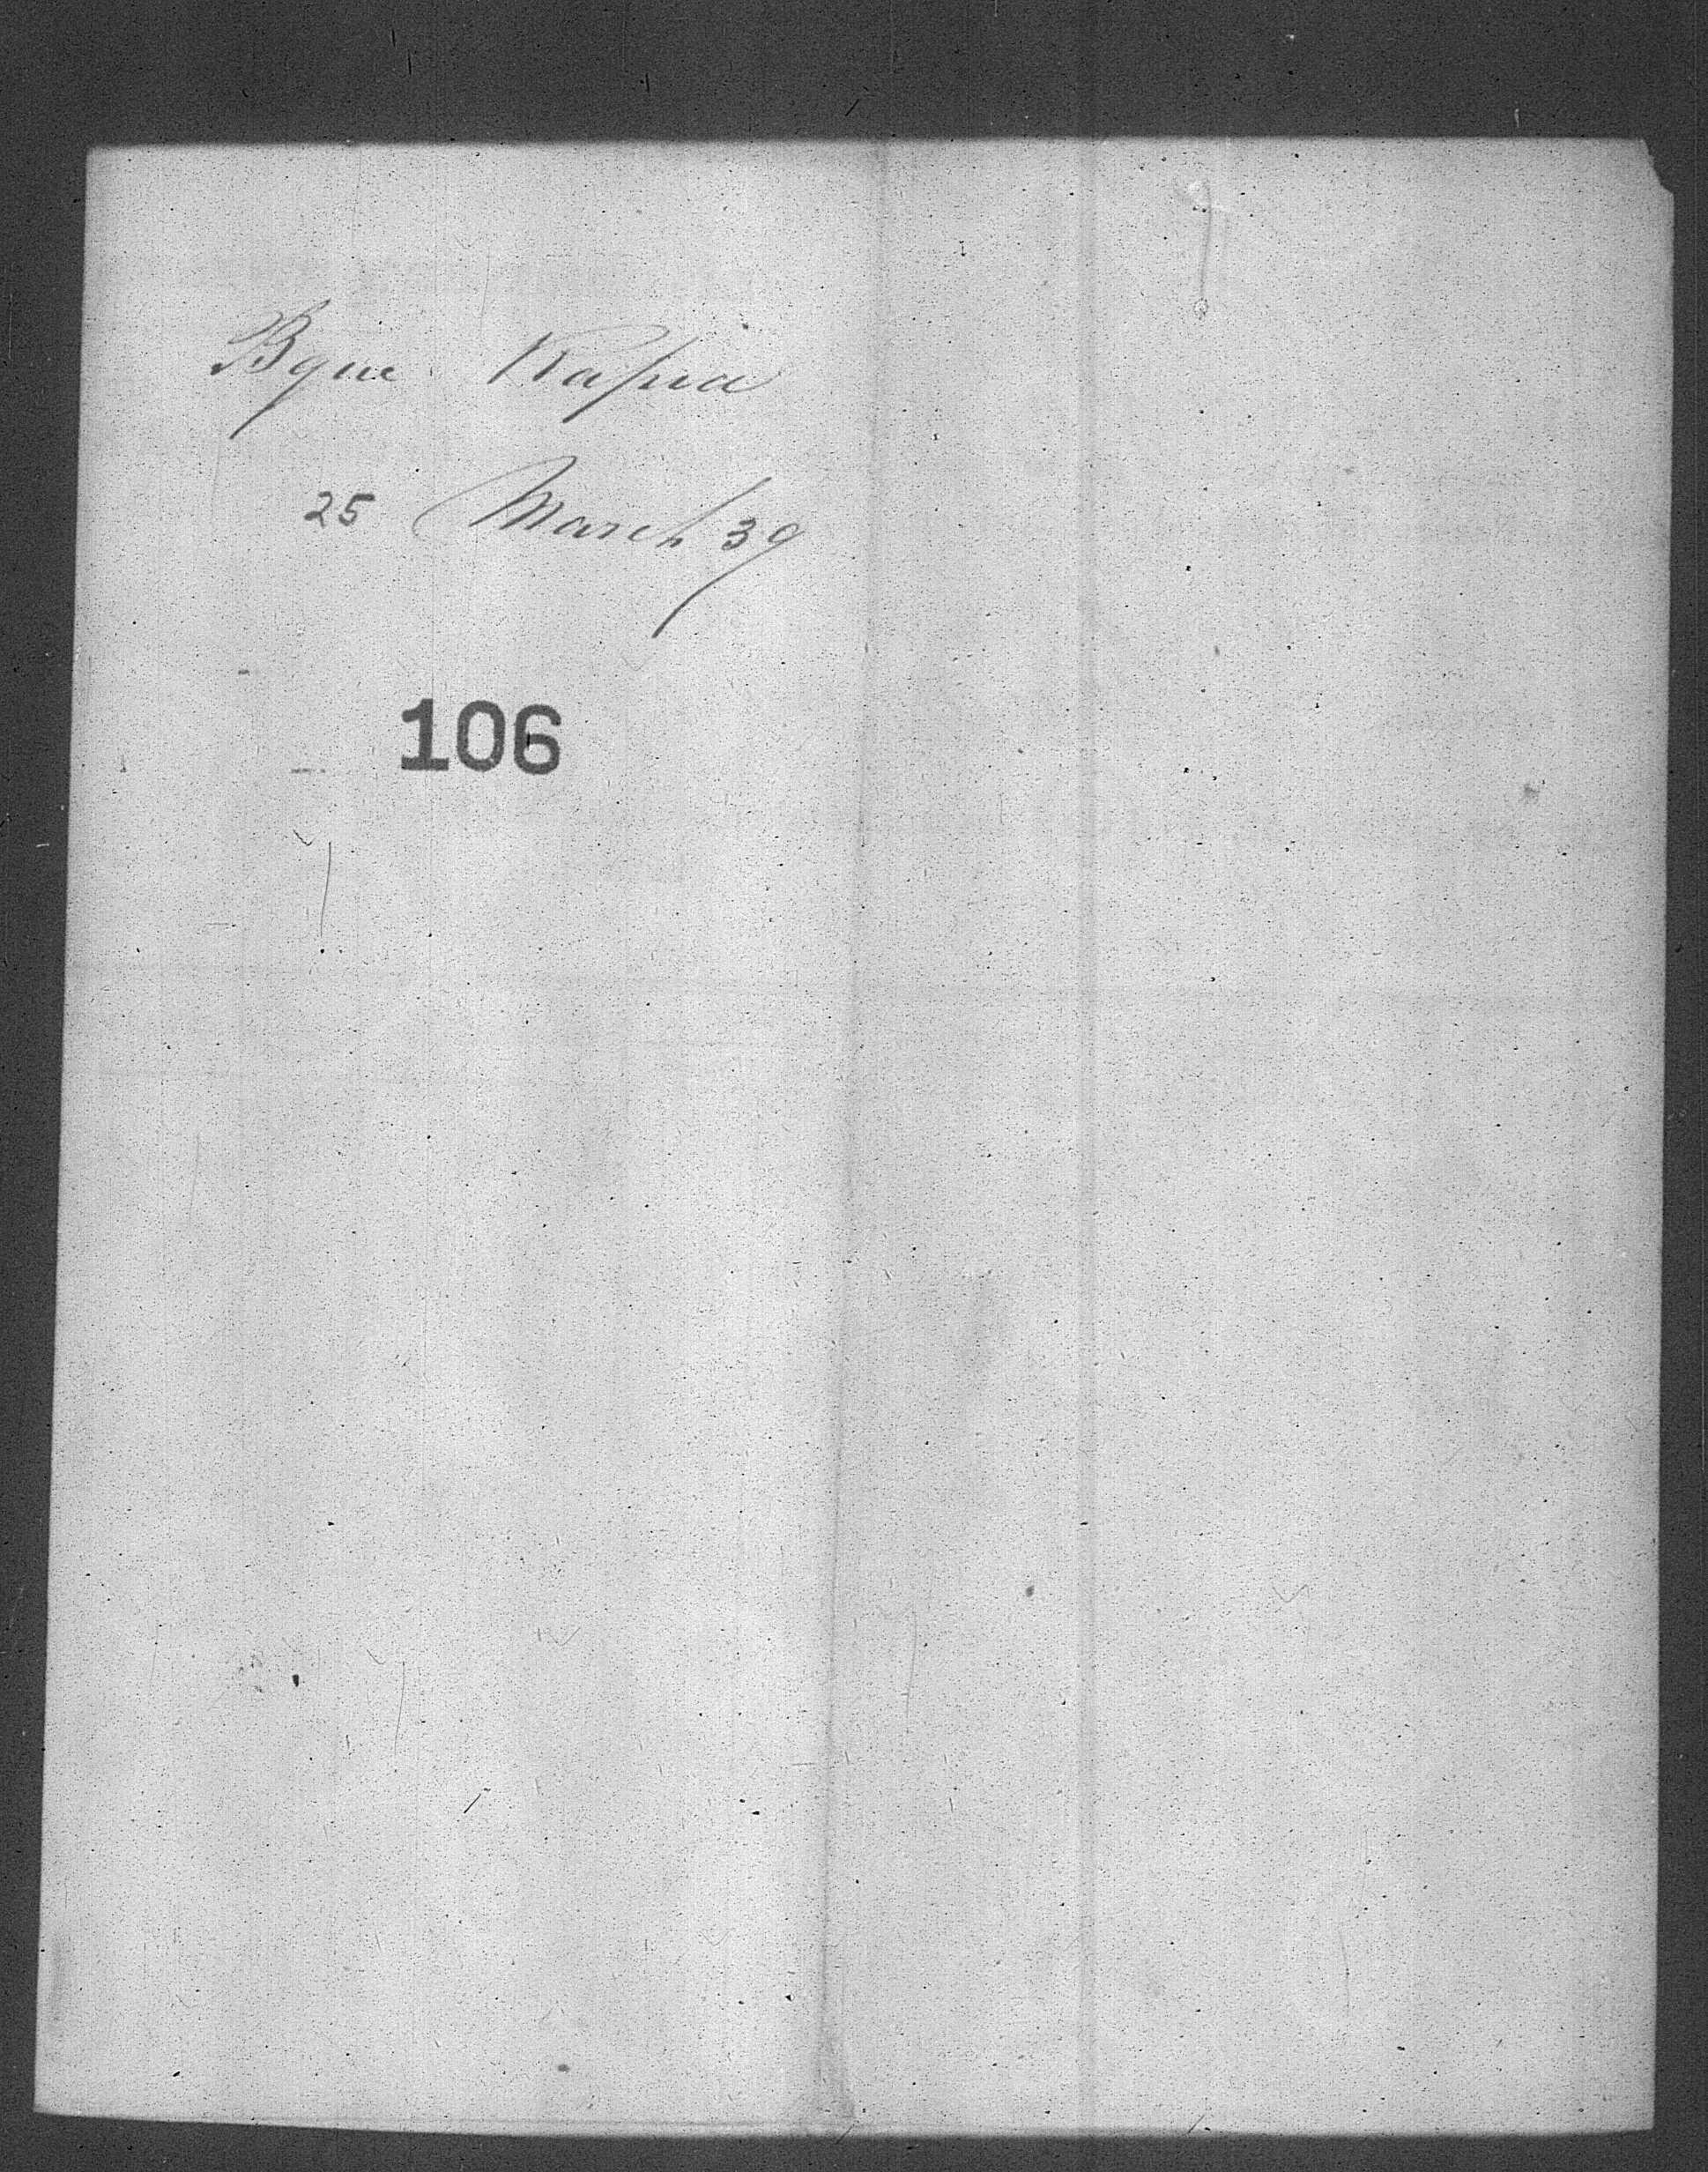 Bque Kapia
25 March 39
106